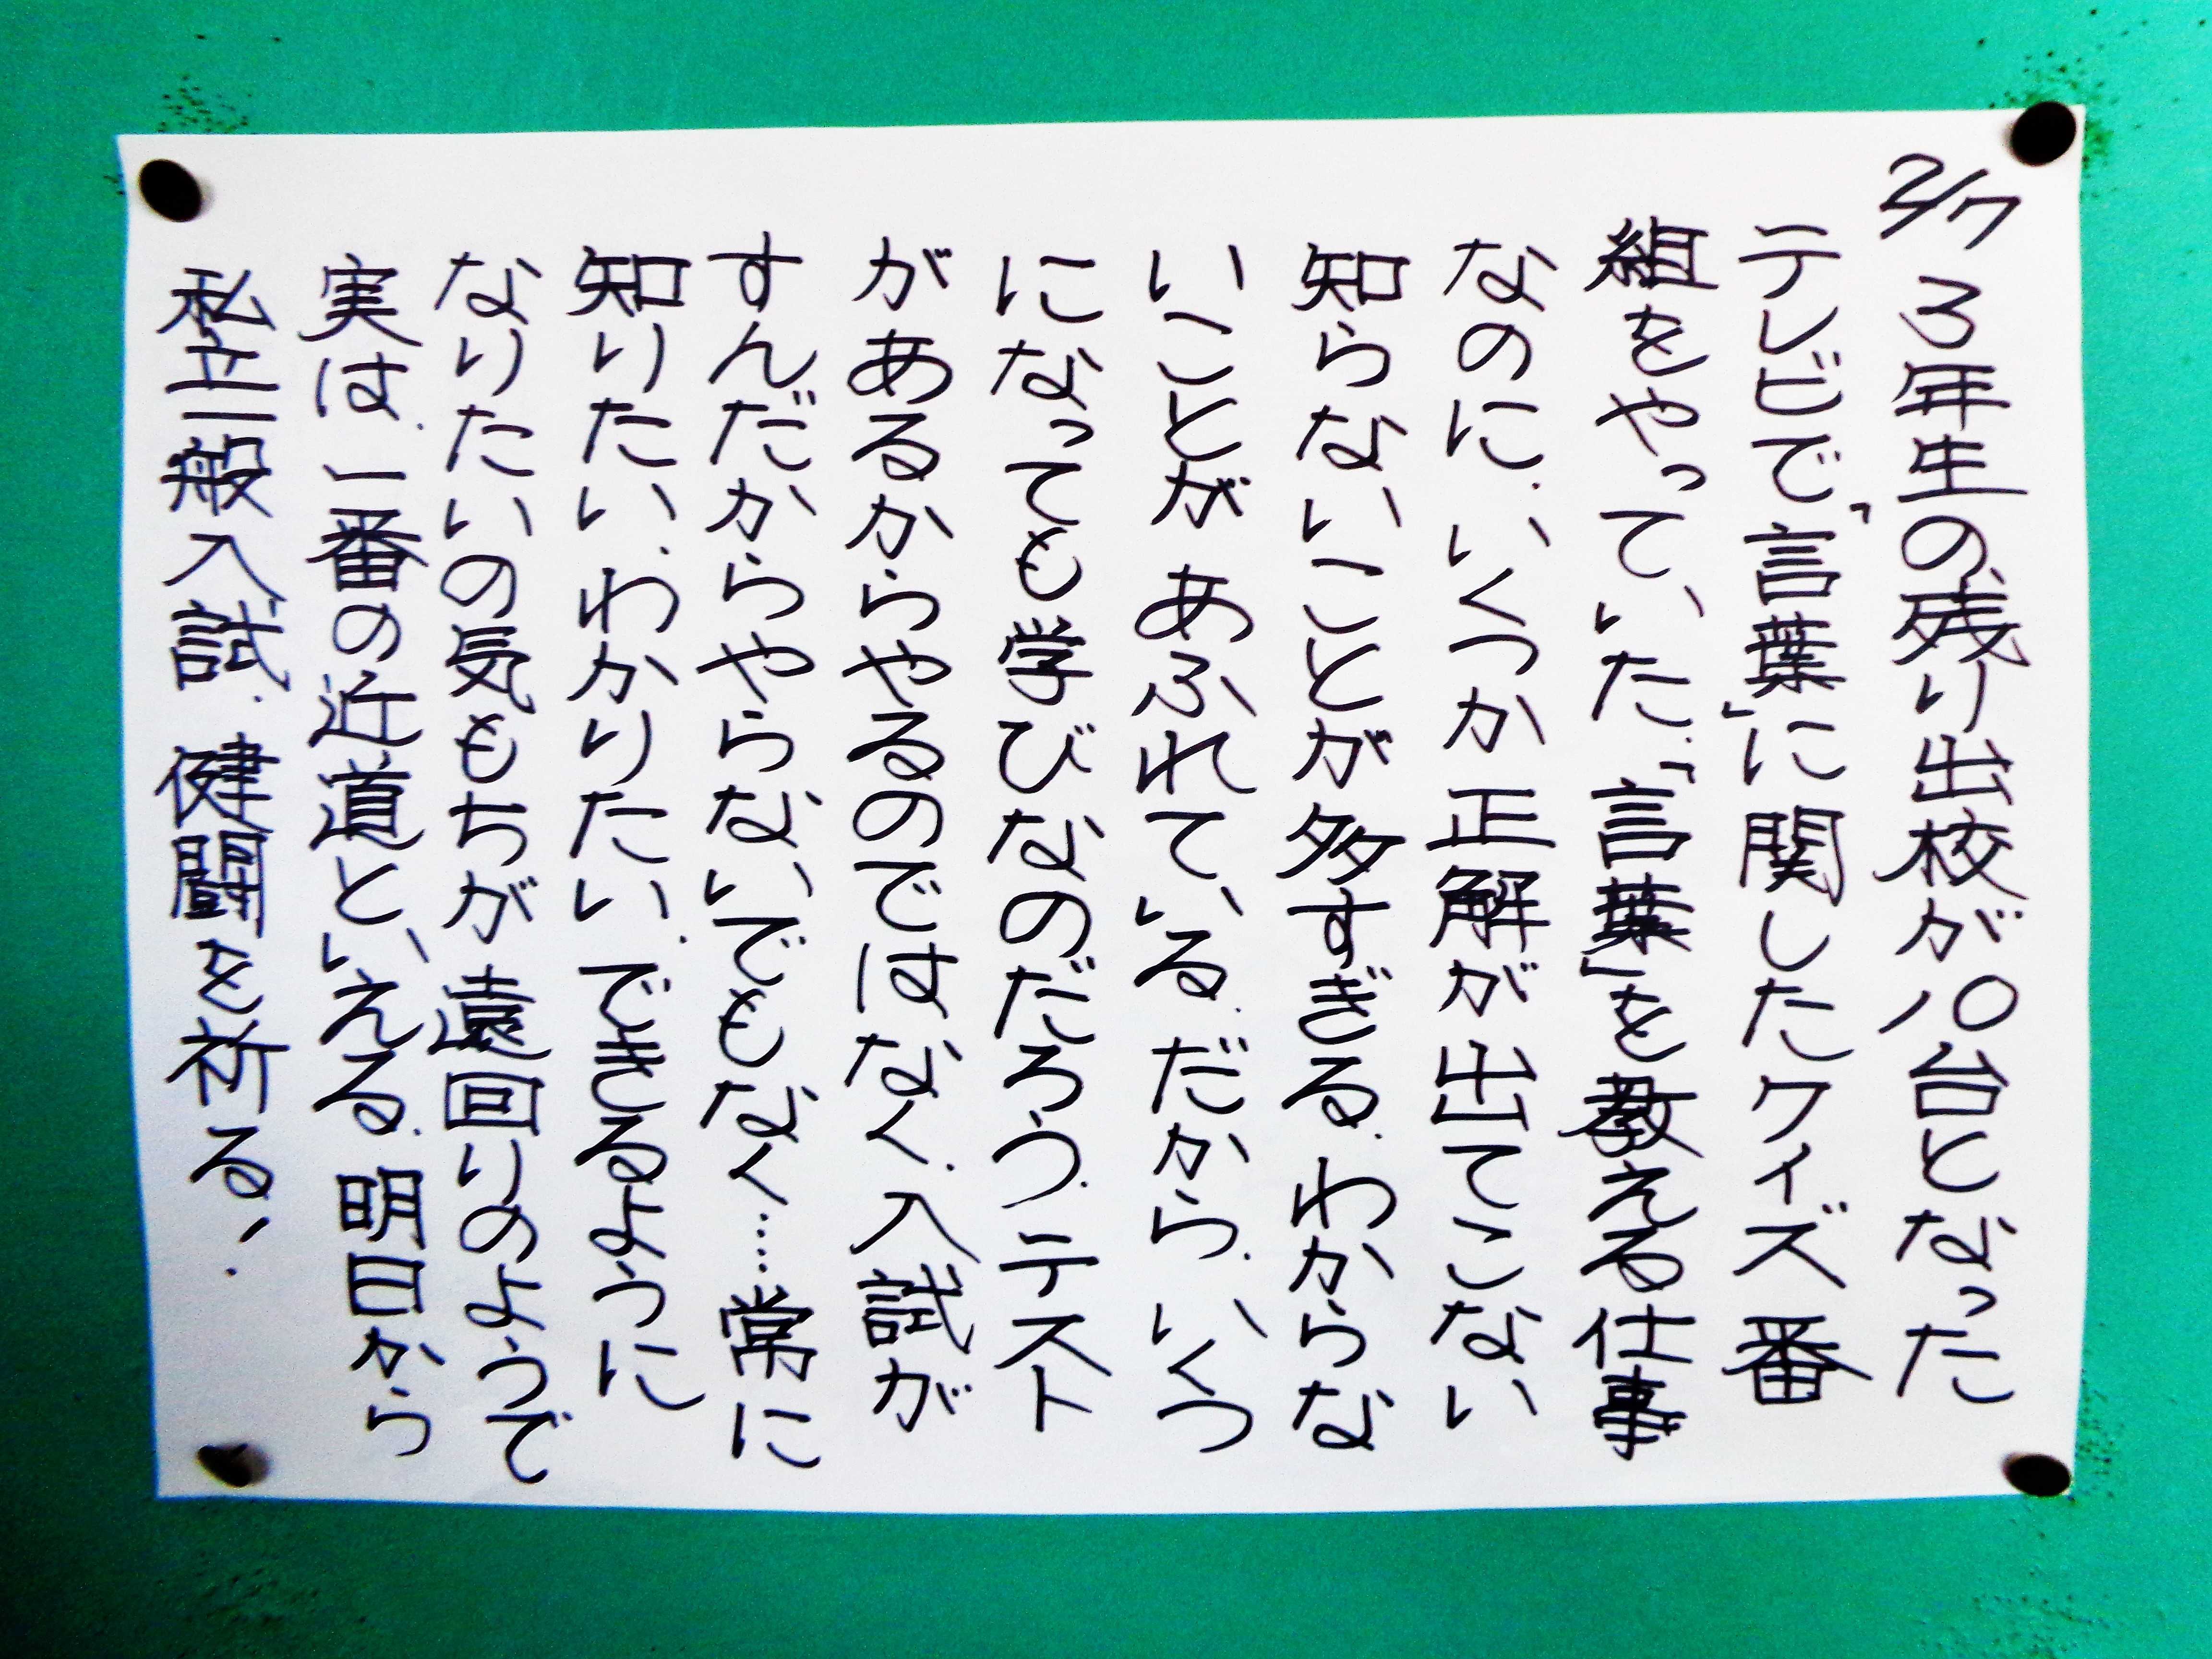 2/7 3年生の残り出校が10台となった
テレビで「言葉」に関したクイズ番
組をやっていた.「言葉」を教える仕事
なのに.いくつか正解が出てこない
知らないことが多すぎる.わからな
いことがあふれている.だから.いくつ
になっても学びなのだろう.テスト
があるからやるのではなく.入試が
すんだからやらないでもなく……常に
知りたい.わかりたい.できるように
なりたいの気もちが遠回りのようで
実は.一番の近道といえる.明日から
私立一般入試.健闘を祈る、.